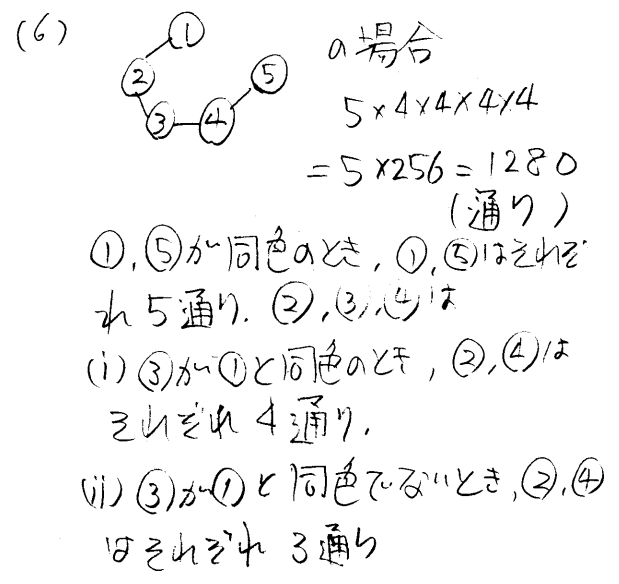 (6)
① ② ③ ④ ⑤ の場合
5×4×4×4×4
=5×256=1280
(通り)
①,⑤が同色のとき,①,⑤はそれぞ
れ5通り.②,③,④は
(i)③が①と同色のとき,②,④は
それぞれ4通り.
(ii)③が①と同色でないとき,②,④
はそれぞれ3通り